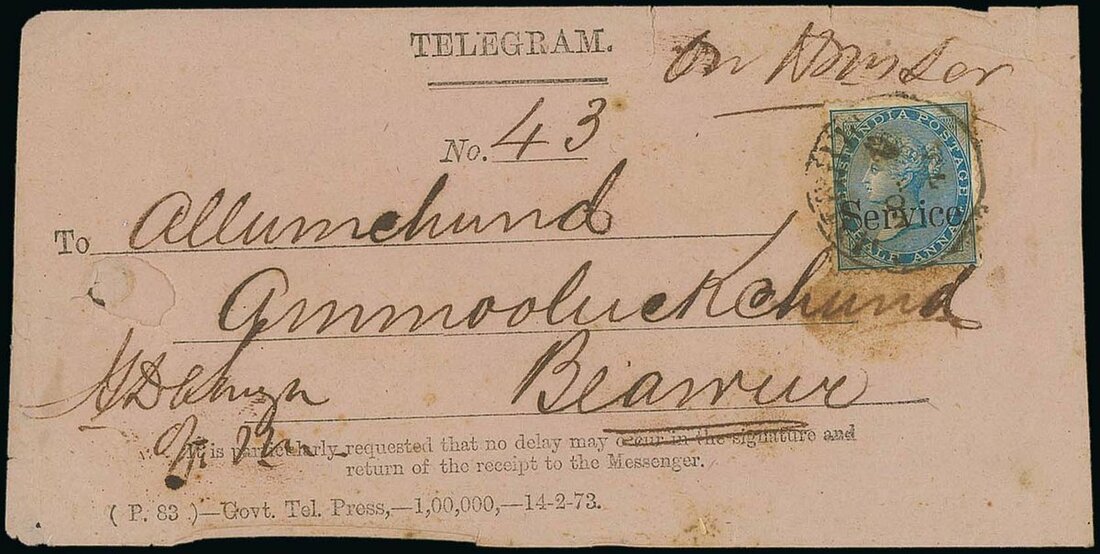 TELEGRAM.
On
No. 43
EAST INDIA POSTAGE
Service
HALF ANNA
To Allumchund
Ammooluckchund
Beawur
It is particularly requested that no delay may occur in the signature and
return of the receipt to the Messenger.
( P. 83 )—Govt. Tel. Press,—1,00,000,—14-2-73.